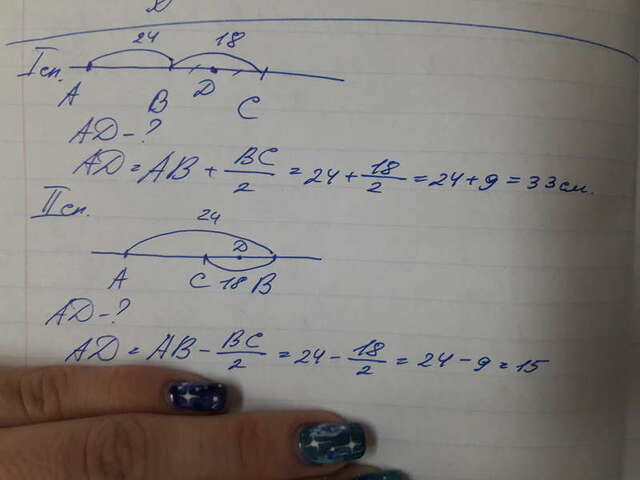 I сл.
24
18
A
B
D
C
AD-?
AD = AB + BC/2 = 24 + 18/2 = 24 + 9 = 33 см.
II сл.
24
A
C
18
D
B
AD-?
AD = AB - BC/2 = 24 - 18/2 = 24 - 9 = 15